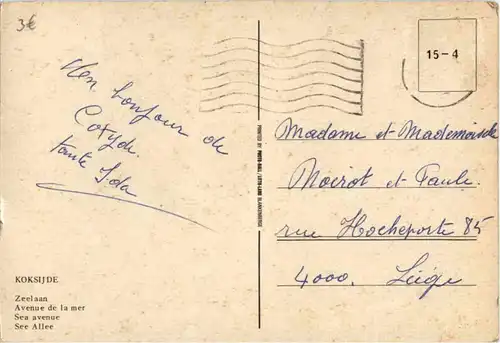 3€
15-4
Un bonjour de
Coxyde
tante Ida
PRINTED BY PHOTO-RAIL / LETTO-LAND BLANKENBERGE
Madame et Mademoiselle
et Faule
rue Hocheporte 85
4000. Liége
KOKSIJDE
Zeelaan
Avenue de la mer
Sea avenue
See Allee